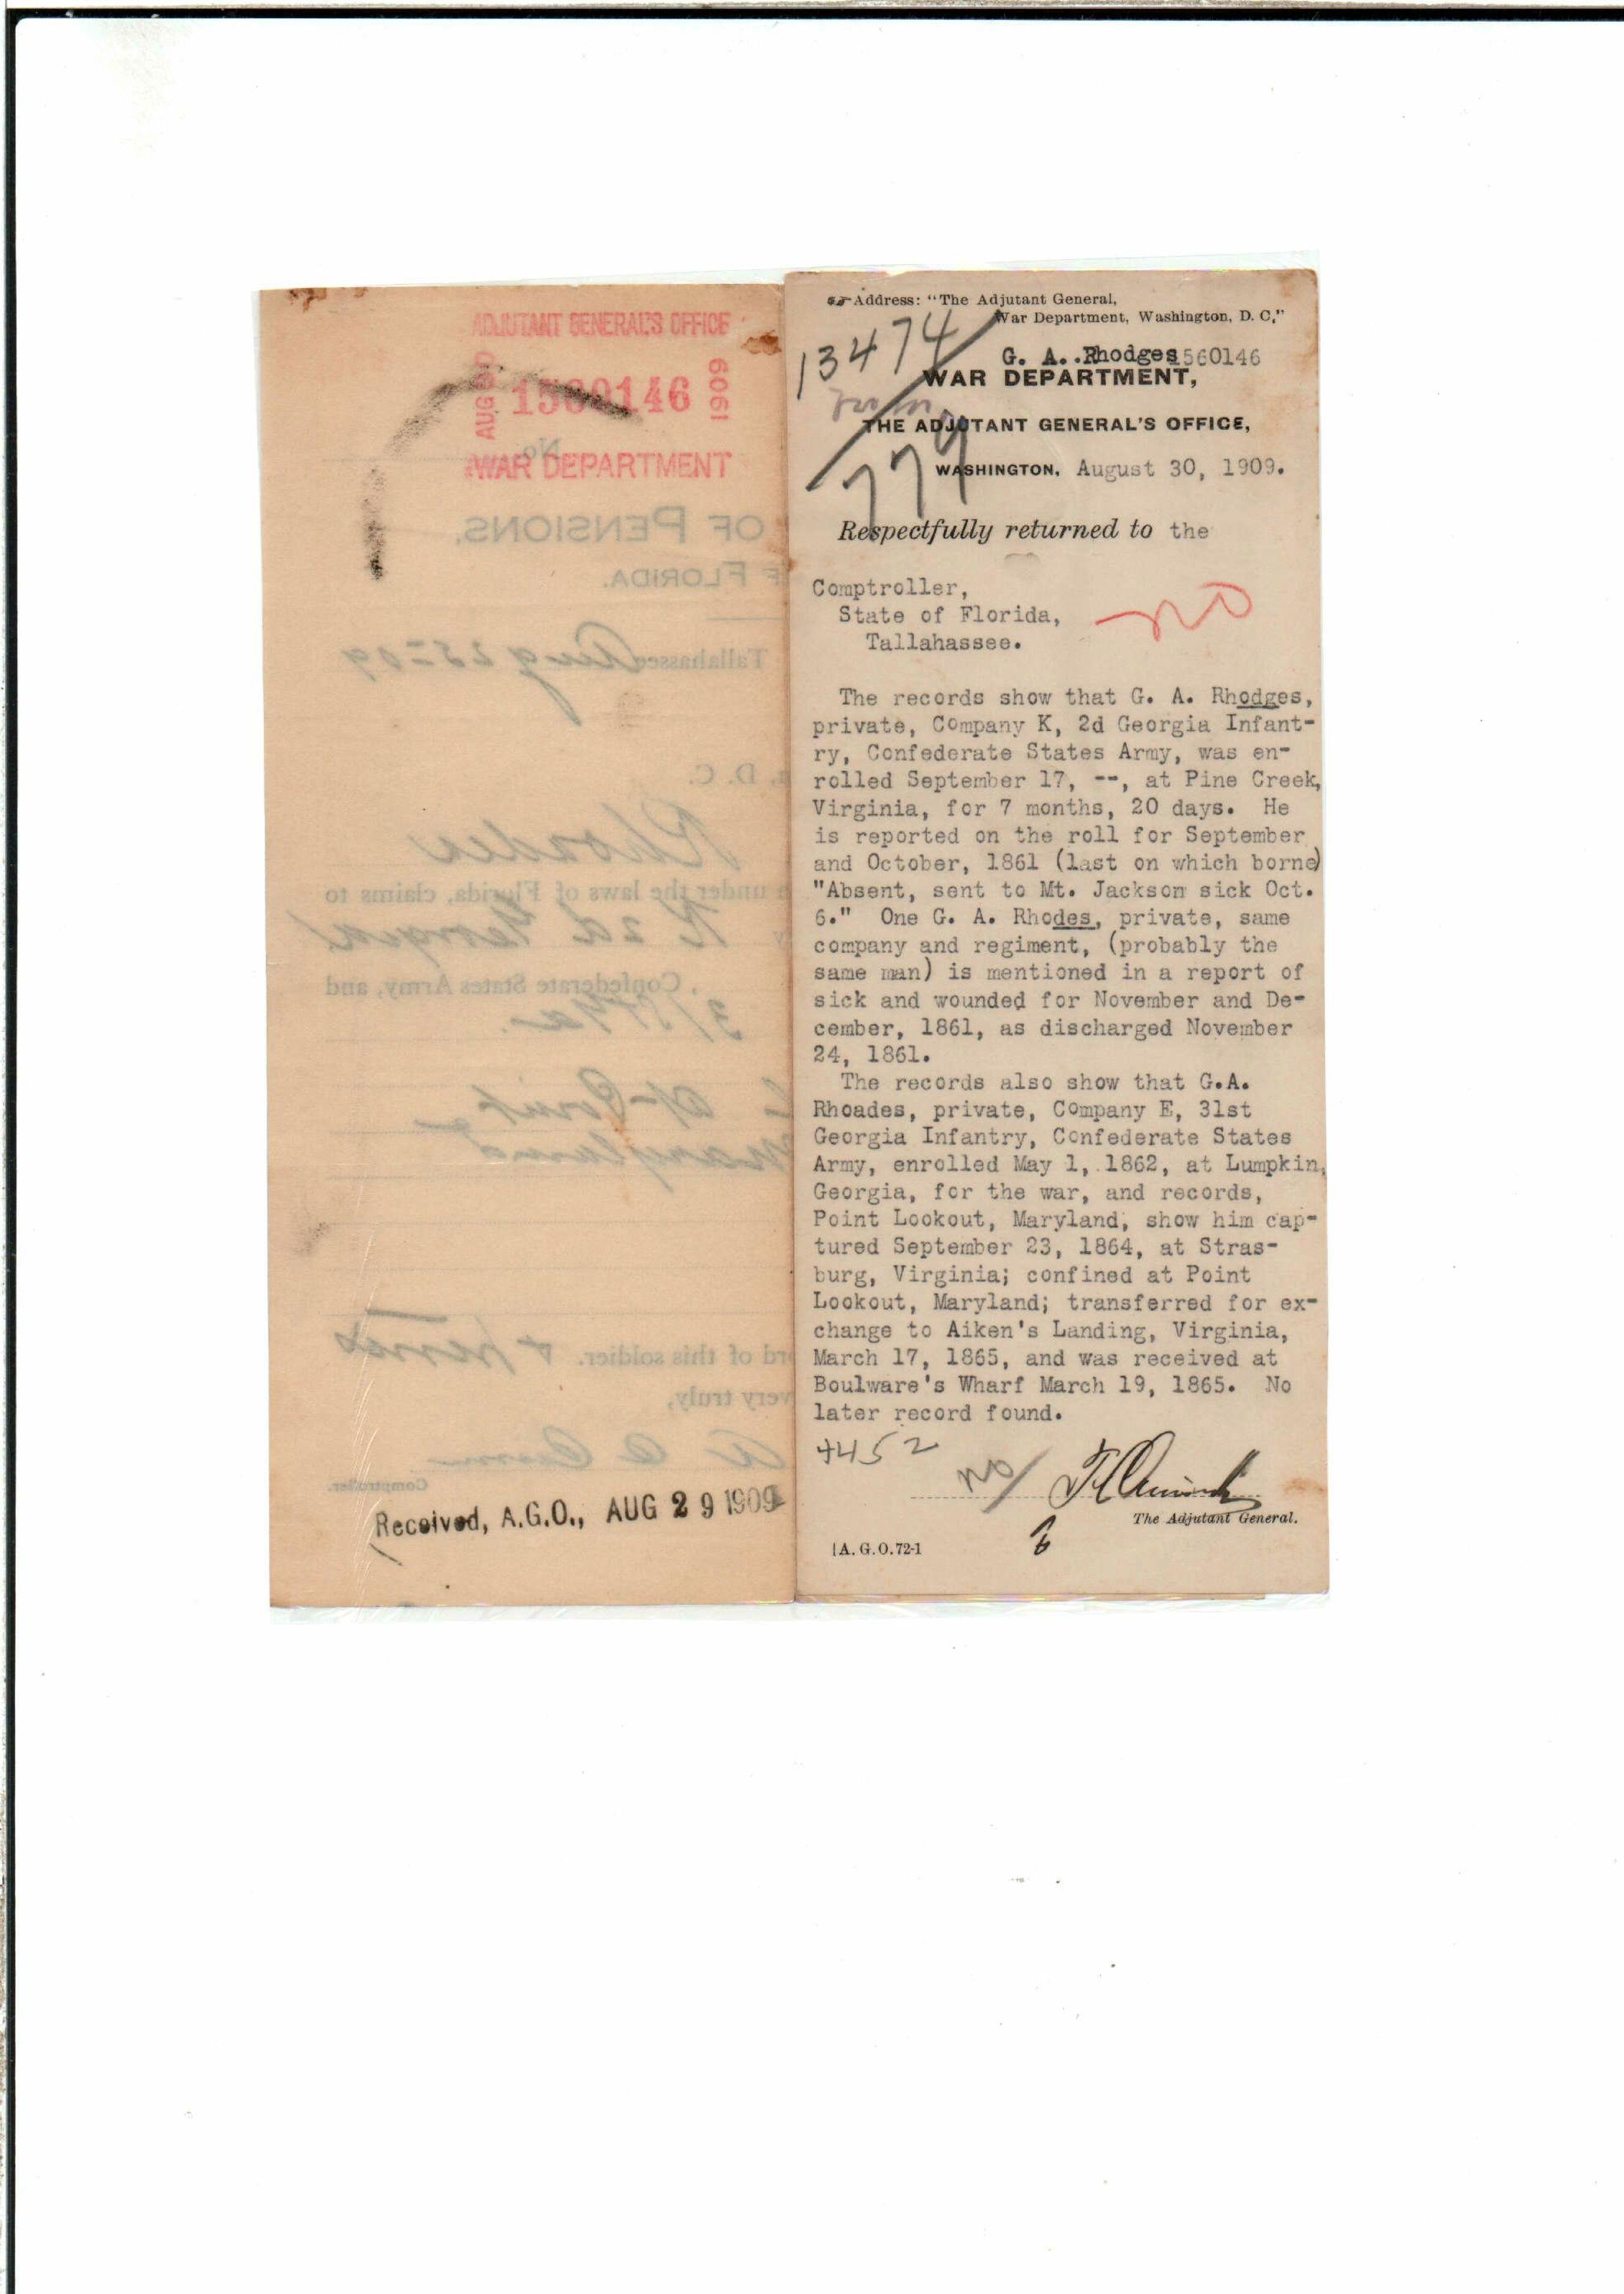 ADJUTANT GENERAL'S OFFICE
AUG 30
1560146
1909
WAR DEPARTMENT
No.
OF PENSIONS,
OF FLORIDA.
Tallahassee Aug 25-09
D. C.
under the laws of Florida, claims to
K 2d Georgia
Confederate States Army, and
at Point
Maryland
of this soldier.
very truly,
Comptroller.
Received, A.G.O., AUG 29 1909
Address: "The Adjutant General,
War Department, Washington, D. C."
13474
G. A. Rhodges 1560146
WAR DEPARTMENT,
THE ADJUTANT GENERAL'S OFFICE,
779
WASHINGTON, August 30, 1909.
Respectfully returned to the
Comptroller,
State of Florida,
Tallahassee.
no
The records show that G. A. Rhodges,
private, Company K, 2d Georgia Infant-
ry, Confederate States Army, was en-
rolled September 17, --, at Pine Creek,
Virginia, for 7 months, 20 days. He
is reported on the roll for September
and October, 1861 (last on which borne)
"Absent, sent to Mt. Jackson sick Oct.
6." One G. A. Rhodes, private, same
company and regiment, (probably the
same man) is mentioned in a report of
sick and wounded for November and De-
cember, 1861, as discharged November
24, 1861.
The records also show that G.A.
Rhoades, private, Company E, 31st
Georgia Infantry, Confederate States
Army, enrolled May 1, 1862, at Lumpkin,
Georgia, for the war, and records,
Point Lookout, Maryland, show him cap-
tured September 23, 1864, at Stras-
burg, Virginia; confined at Point
Lookout, Maryland; transferred for ex-
change to Aiken's Landing, Virginia,
March 17, 1865, and was received at
Boulware's Wharf March 19, 1865. No
later record found.
The Adjutant General.
A. G. O. 72-1